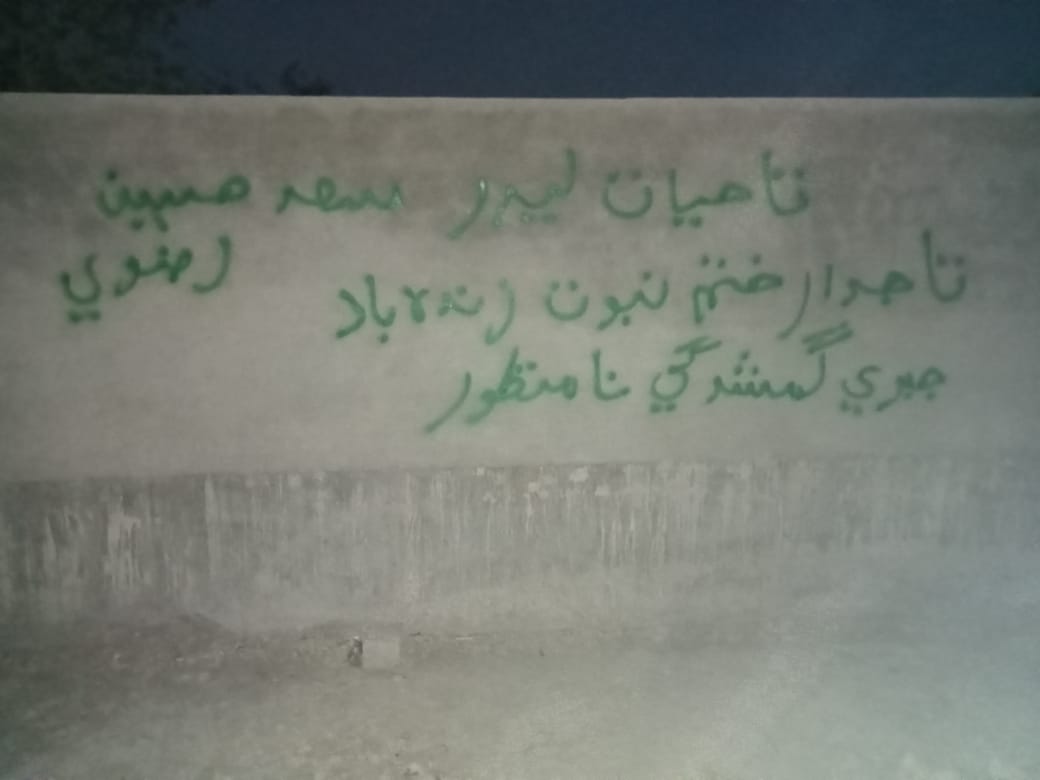 تاحيات ليڊر سعد حسين
رضوي
تاجدار ختم نبوت زنده باد
جبري گمشدگي نا منظور